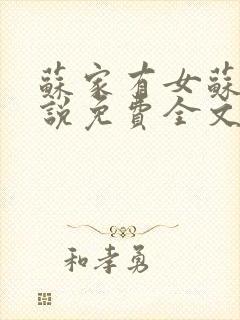 蘇家有女蘇
說免費全文
和孝勇